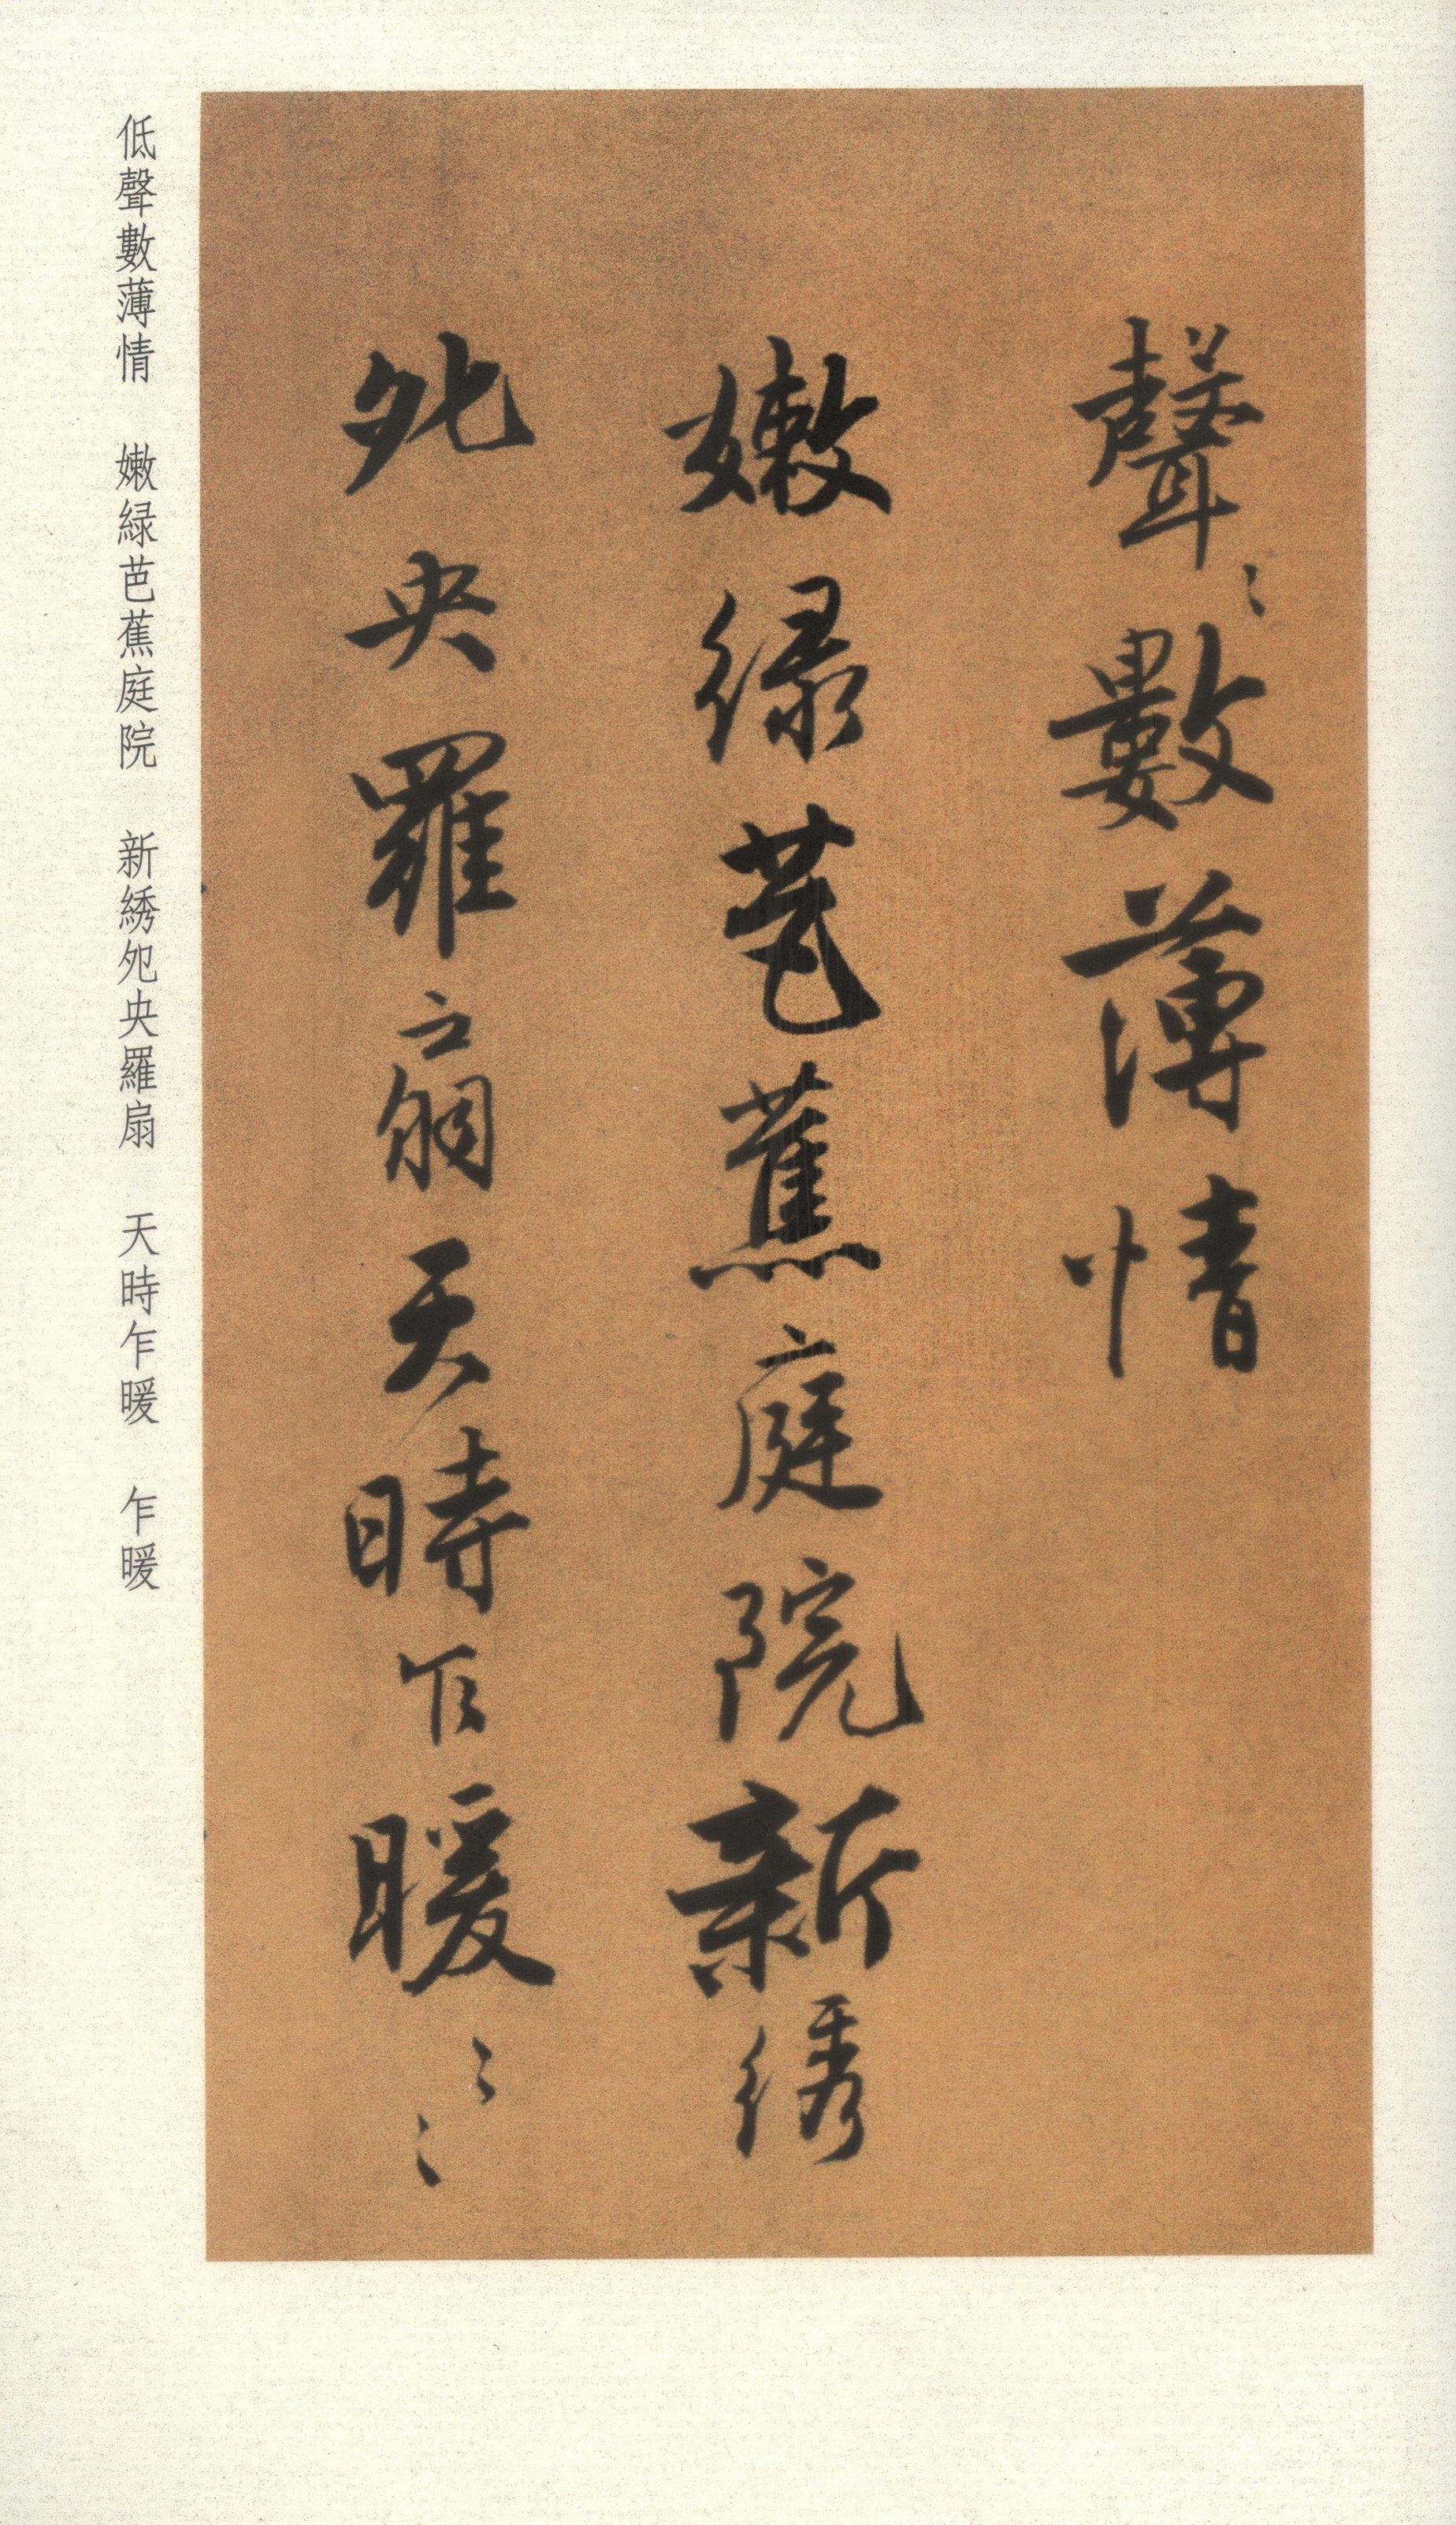 聲〻數薄情
嫩緑芭蕉庭院新綉
夗央羅扇天時乍暖〻〻
低聲數薄情　嫩緑芭蕉庭院　新綉夗央羅扇　天時乍暖　乍暖